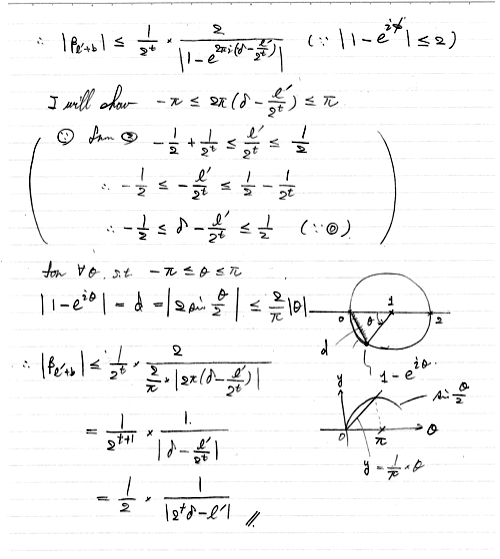 ∴ |β_{ℓ'+b}| ≤ 1/2^t × 2/|1-e^{2πi(δ-ℓ'/2^t)}| (∵ |1-e^{iϕ}| ≤ 2)
I will show -π ≤ 2π(δ-ℓ'/2^t) ≤ π
∵ from ③ -1/2 + 1/2^t ≤ ℓ'/2^t ≤ 1/2
∴ -1/2 ≤ -ℓ'/2^t ≤ 1/2 - 1/2^t
∴ -1/2 ≤ δ-ℓ'/2^t ≤ 1/2 (∵ ⓪)
for ∀θ s.t. -π ≤ θ ≤ π
|1-e^{iθ}| = d = |2 sin θ/2| ≤ 2/π |θ|
0 θ 1 2
d
1-e^{iθ}
∴ |β_{ℓ'+b}| ≤ 1/2^t × 2/(2/π × |2π(δ-ℓ'/2^t)|)
y sin θ/2
0 π θ
y = 1/π × θ
= 1/2^{t+1} × 1/|δ-ℓ'/2^t|
= 1/2 × 1/|2^tδ-ℓ'| //